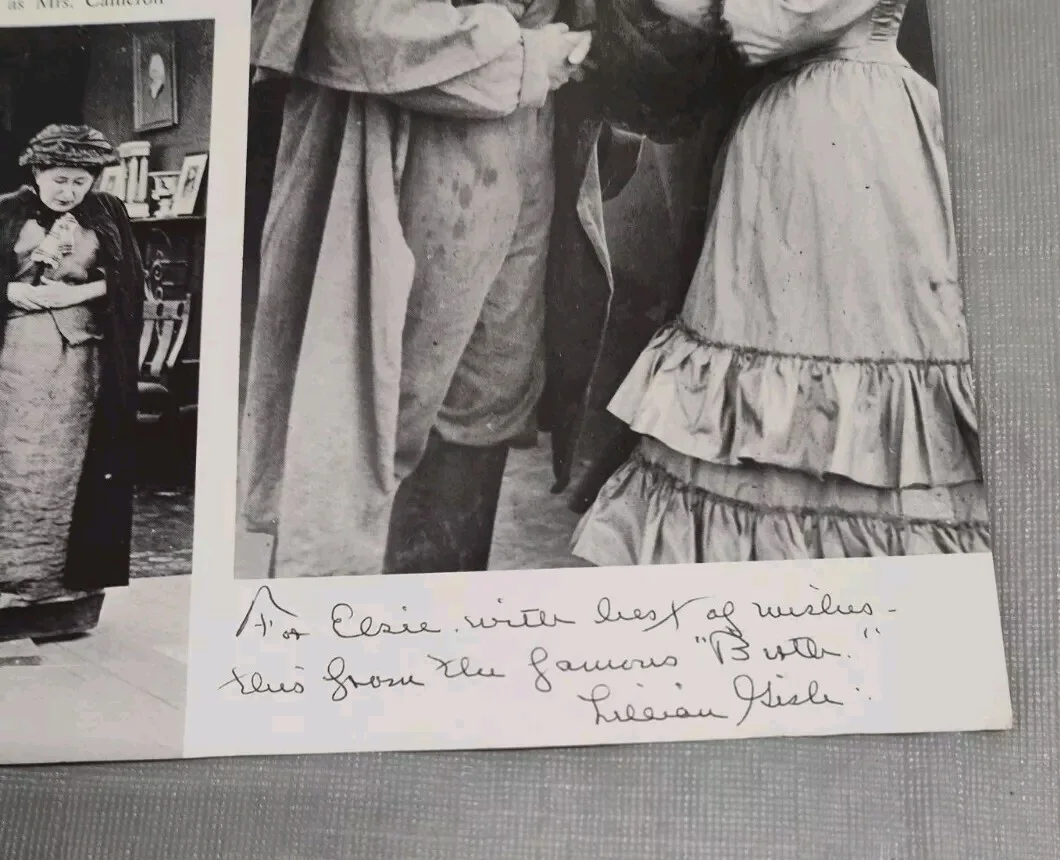 as Mrs. Cameron
For Elsie. with best of wishes -
this from the famous "Birth."
Lillian Gish